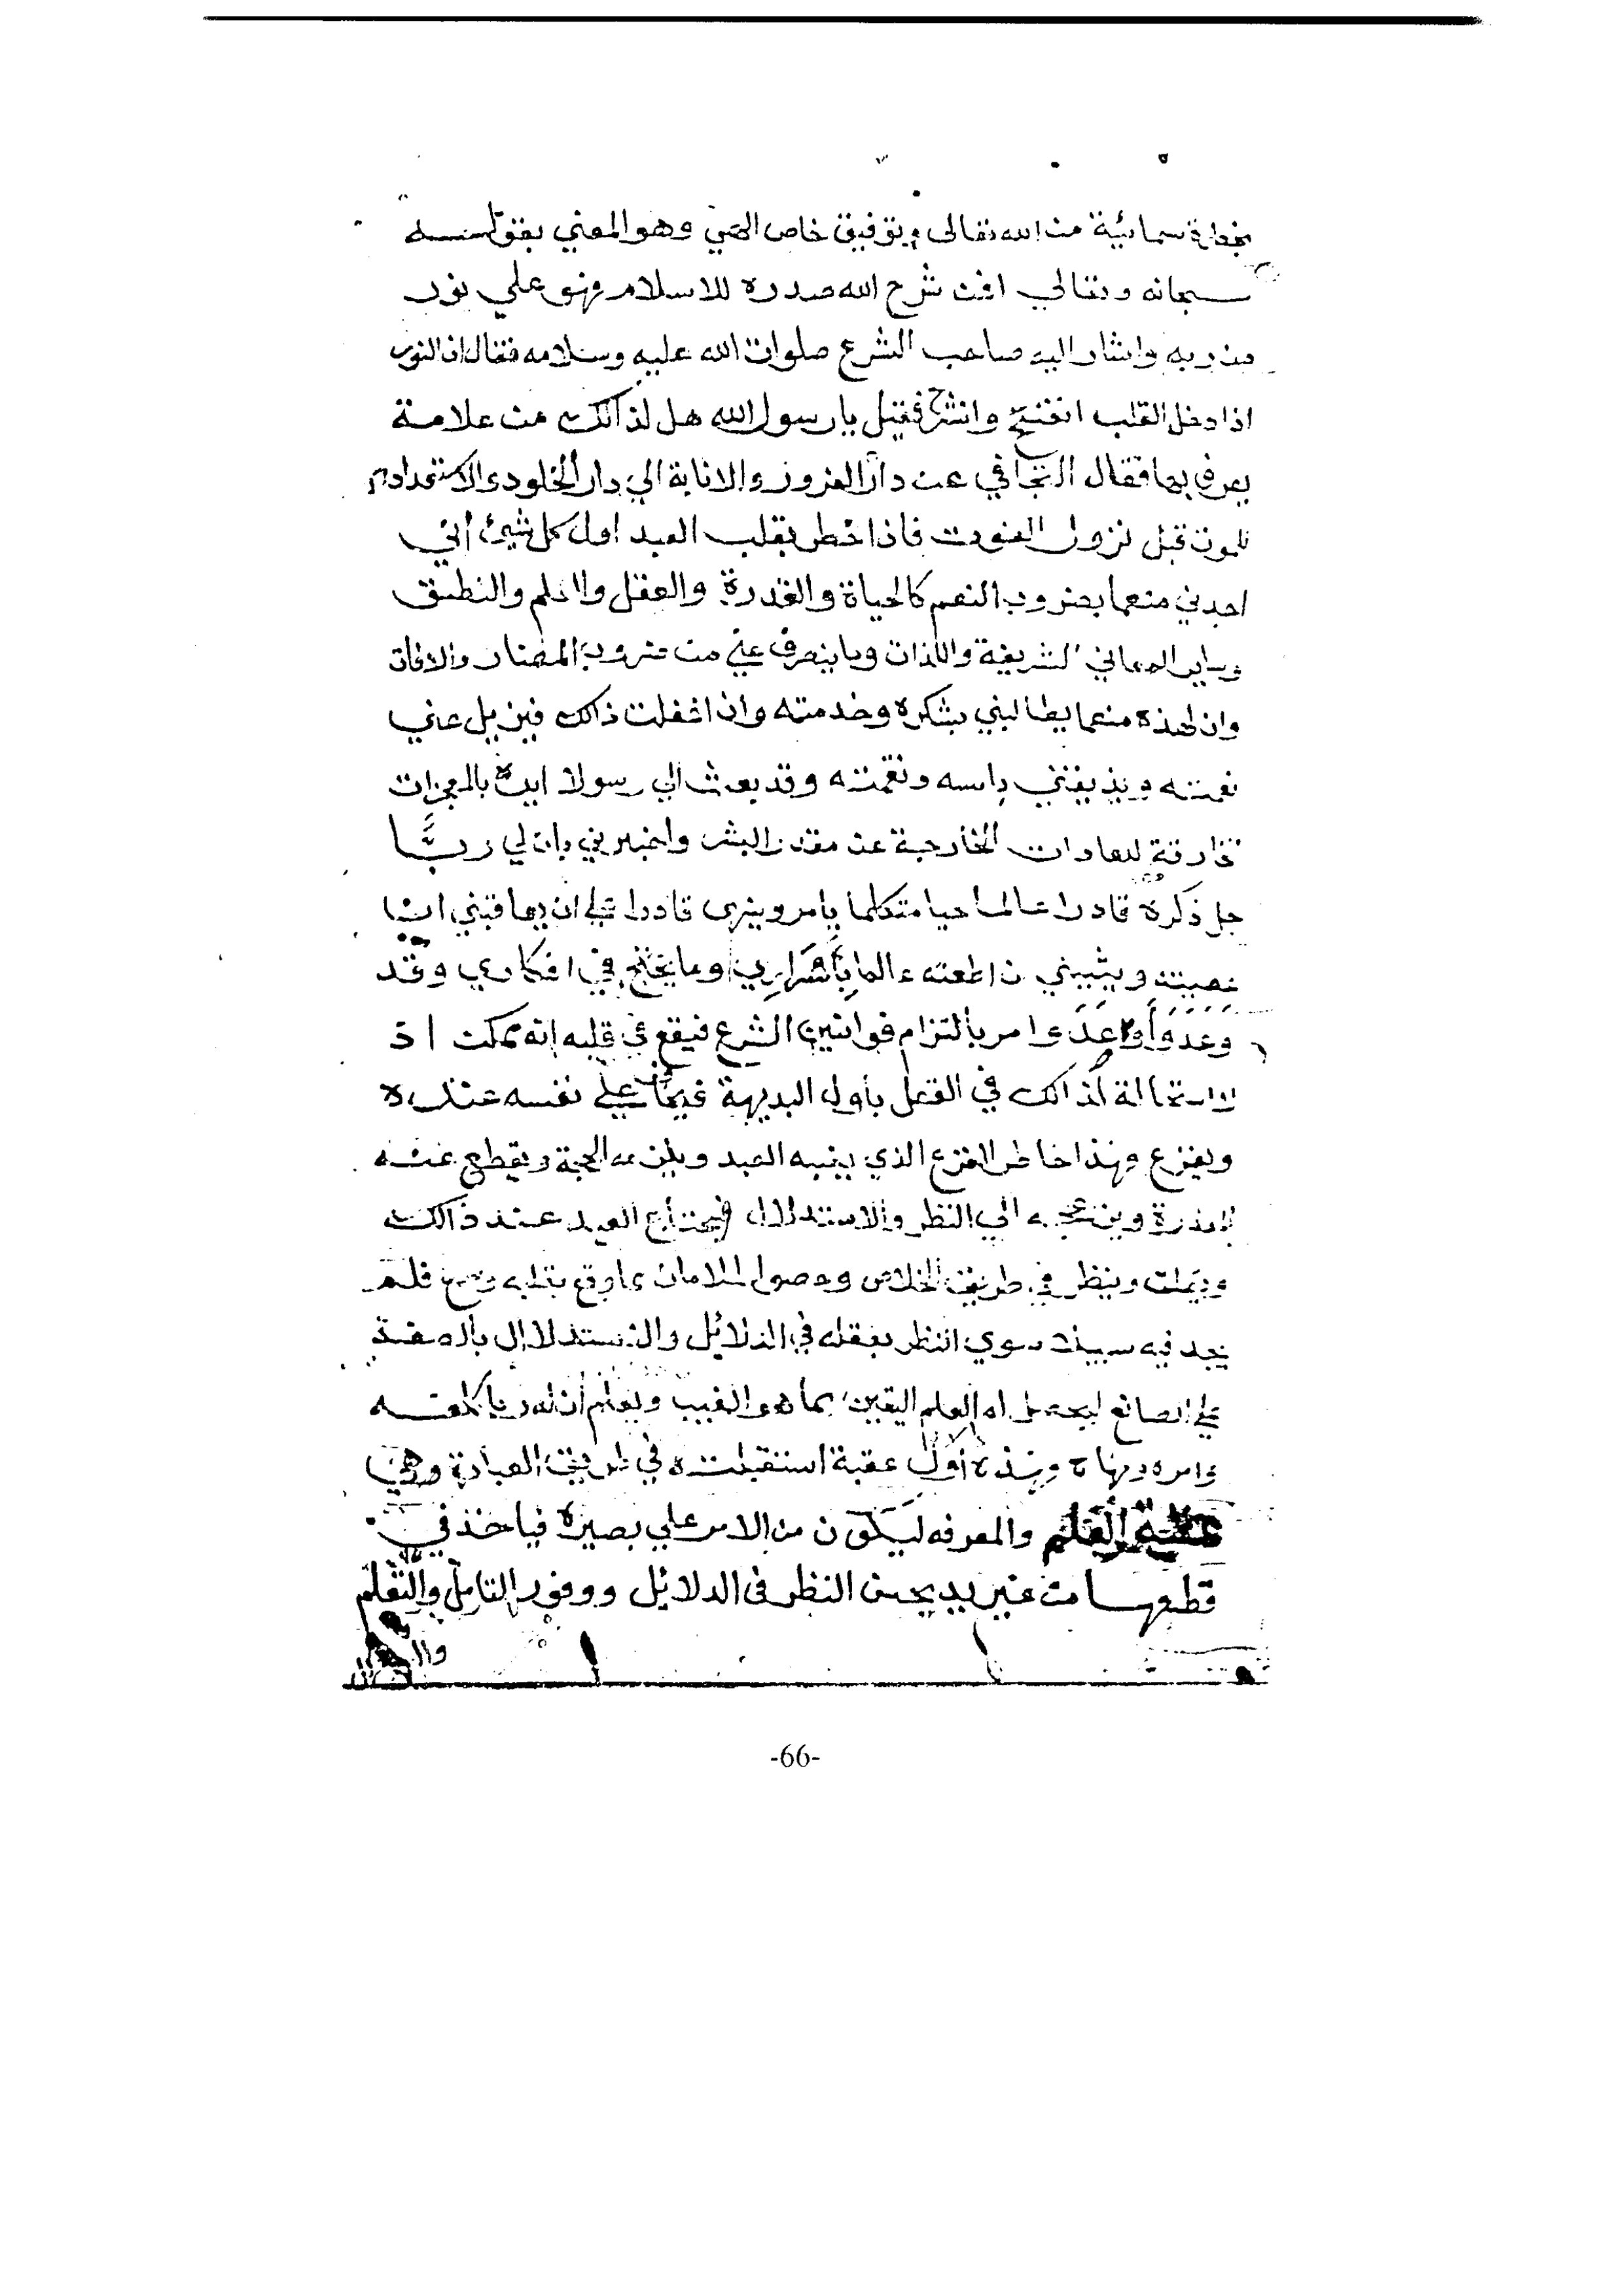 بخطرة سمائية من الله تعالى وبتوفيق خاص الهي وهو المعني بقوله
سبحانه وتعالي افمن شرح الله صدره للاسلام فهو علي نور
من ربه واشار اليه صاحب الشرع صلوات الله عليه وسلامه فقال ان النور
اذا دخل القلب انفتح وانشرح فقيل يا رسول الله هل لذالك من علامة
يعرف بها فقال التجافي عن دار الغرور والانابة الي دار الخلود والاستعداد
للموت قبل نزول الموت فاذا خطر بقلب العبد اول كل شيئ أني
اجدني منعما بضروب النعم كالحياة والقدرة والعقل والعلم والنطق
وساير المعاني الشريفة واللذات وما ينصرف عني من ضروب المضار والافات
وان لهذه منعما يطالبني بشكره وخدمته وان اغفلت ذالك فيزيل عني
نعمته ويذيقني باسه ونقمته وقد بعث الي رسولا ايده بالمعجزات
الخارقة للعادات الخارجة عن مقدر البشر واخبرني بان لي ربًّا
جل ذكره قادرا عالما حيا متكلما يامر وينهى قادرا علي ان يعاقبني ان
عصيته ويثيبني ان اطعته عالما بأسراري وما يختلج في افكاري وقد
وعد وأوعد وامر بالتزام قوانين الشرع فيقع في قلبه انه ممكن اذ
لا استحالة لذالك في العقل بأول البديهة فيخاف علي نفسه عنده
ويفزع فهذا خاطر الفزع الذي ينبه العبد ويلزمه الحجة ويقطع عنه
المعذرة ويزعجه الي النظر والاستدلال فيحتاج العبد عند ذالك
وينظر في طريق الخلاص وحصول الامان مما وقع بقلبه فلم
يجد فيه سبيلا سوي النظر بعقله في الدلائل والاستدلال بالصنعة
علي الصانع ليحصل له العلم اليقين بما هو الغيب ويعلم ان له ربا كلفه
وامره ونهاه وهذه أول عقبة استقبلته في طريق العبادة وهي
عقبة العلم والمعرفه ليكون من الامر علي بصيرة فياخذ في
قطعها من غير بد بحسن النظر في الدلائل ووفور التامل والتعلم
-66-